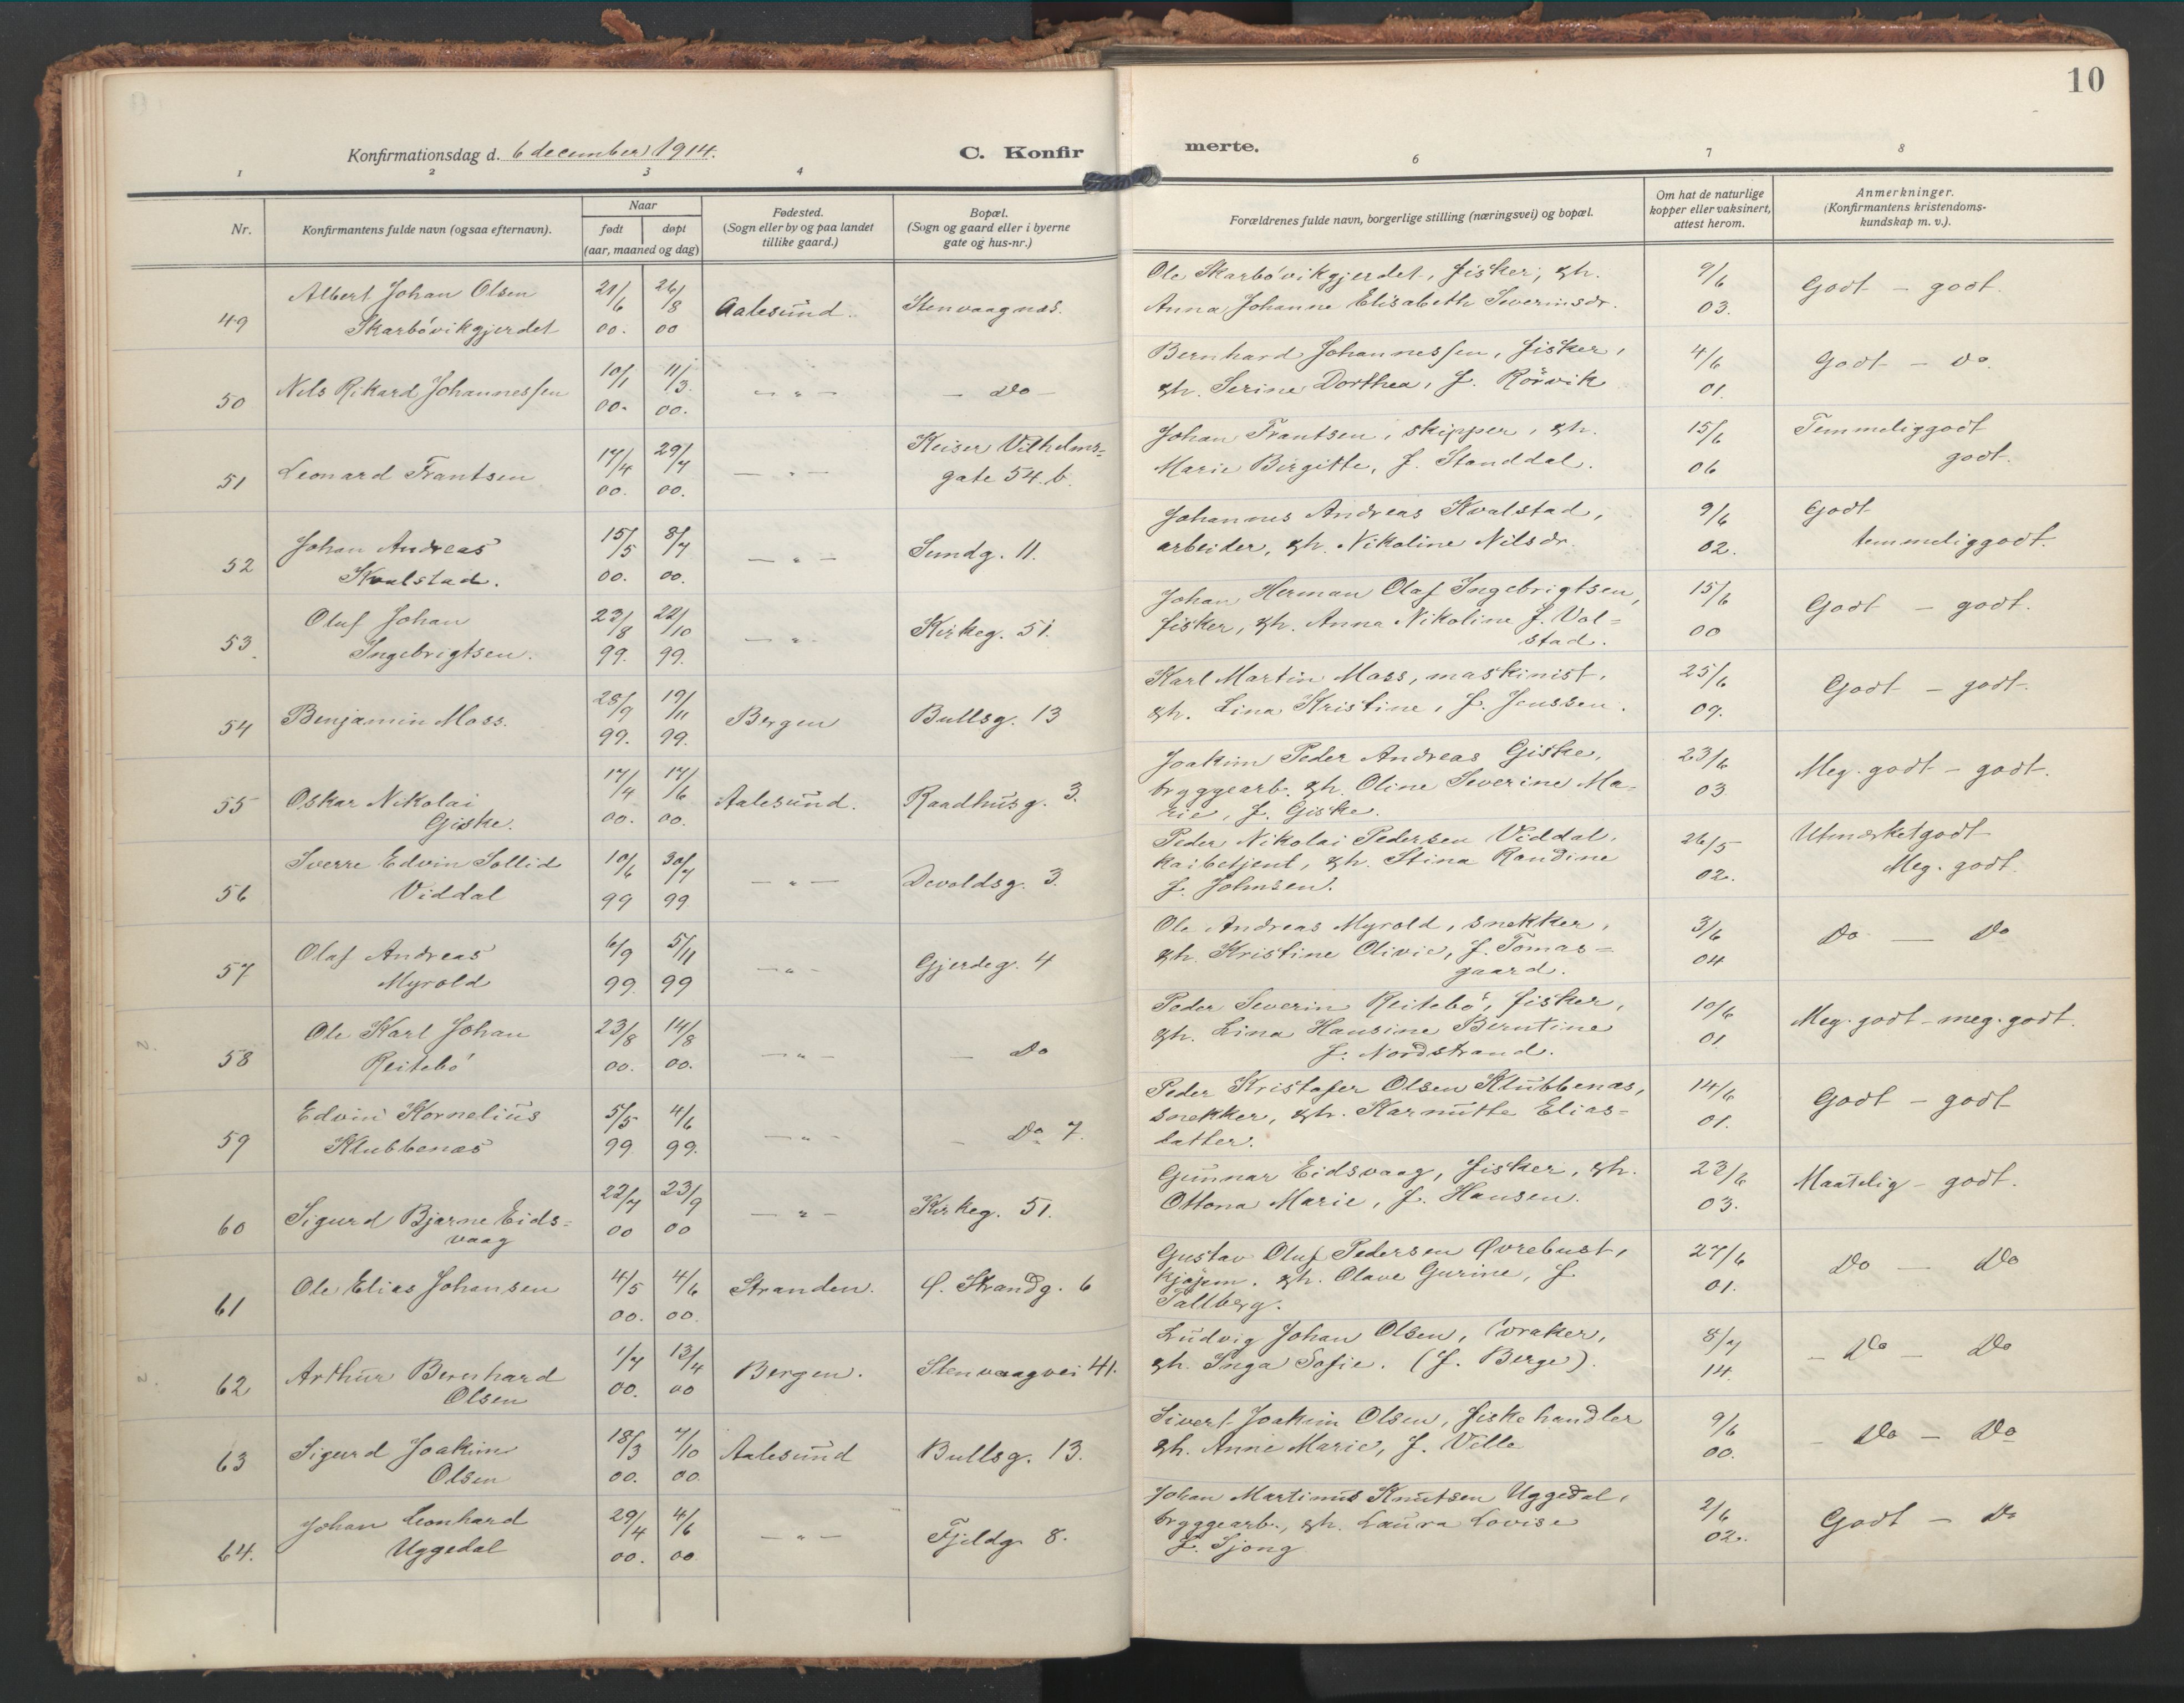 10
Konfirmationsdag d. 6 december 1914.
C. Konfir
merte.
1 2 3 4
6 7 8
Nr.
Konfirmantens fulde navn (ogsaa efternavn).
Naar
født døpt
(aar, maaned og dag)
Fødested.
(Sogn eller by og paa landet
tillike gaard.)
Bopæl.
(Sogn og gaard eller i byerne
gate og hus-nr.)
Forældrenes fulde navn, borgerlige stilling (næringsvei) og bopæl.
Om hat de naturlige
kopper eller vaksinert,
attest herom.
Anmerkninger.
(Konfirmantens kristendoms-
kundskap m. v.).
49 Albert Johan Olsen
Skarbövikgjerdet
21/6 00. 26/8 00
Aalesund. Stenvaagnæs.
Ole Skarbövikgjerdet, fisker, &h.
Anna Johanne Elisabeth Severinsdr.
9/6 03.
Godt - godt.
50 Nils Rikard Johannessen
10/1 00. 11/3 00.
— „ — — Do —
Bernhard Johannessen, fisker,
&h. Serine Dorthea, f. Rörvik
4/6 01.
Godt - do.
51 Leonard Frantsen
17/4 00. 29/7 00.
— „ — Keiser Vilhelms=
gate 54. b.
Johan Frantsen, skipper, &h.
Marie Birgitte, f. Standdal.
15/6 06
Temmeliggodt
godt.
52 Johan Andreas
Kvalstad.
15/5 00. 8/7 00.
— „ — Sundg. 11.
Johannes Andreas Kvalstad,
arbeider, &h. Nikoline Nilsdr.
9/6 02.
Godt
temmeliggodt.
53. Oluf Johan
Ingebrigtsen.
23/8 99. 22/10 99.
— „ Kirkeg. 51.
Johan Herman Olaf Ingebrigtsen,
fisker, &h. Anna Nikoline f. Val=
stad.
15/6 00
Godt - godt.
54 Benjamin Moss.
28/9 99. 19/11 99.
Bergen Bullsg. 13
Karl Martin Moss, maskinist,
&h. Lina Kristine, f. Jenssen.
25/6 09.
Godt - godt.
55 Oskar Nikolai
Giske.
17/4 00. 17/6 00.
Aalesund. Raadhusg. 3.
Joakim Peder Andreas Giske,
bryggearb. &h. Oline Severine Ma=
rie, f. Giske.
23/6 03
Meg. godt - godt.
56 Sverre Edvin Sollid
Viddal
10/6 99 30/7 99
— „ — Devoldsg. 3.
Peder Nikolai Pedersen Viddal,
kaibetjent, &h. Stina Randine
f. Johnsen.
26/5 02.
Utmerketgodt
Meg. godt.
57 Olaf Andreas
Myrold
6/9 99. 5/11 99
— „ — Gjerdeg. 4
Ole Andreas Myrold, snekker,
&h. Kristine Olivie, f. Tomas=
gaard.
3/6 04
Do — Do
58 Ole Karl Johan
Reitebö
23/8 00. 14/8 00.
— „ — — Do
Peder Severin Reitebö, fisker,
&h. Lina Hansine Berntine
f. Nordstrand.
10/6 01.
Meg. godt - meg. godt.
59 Edvin Kornelius
Klubbenæs
5/5 99 4/6 99.
— „ — — Do 7.
Peder Kristofer Olsen Klubbenæs,
snekker, &h. Karnutte Elias=
datter.
14/6 01.
Godt - godt
60 Sigurd Bjarne Eids=
vaag
22/7 00 23/9 00
— „ — Kirkeg. 51.
Gunnar Eidsvaag, fisker, &h.
Ottona Marie, f. Hansen.
23/6 03.
Maatelig - godt.
61 Ole Elias Johansen
4/5 00. 4/6 00.
Stranden. Strandg. 6
Gustav Oluf Pedersen Øvrebust,
&h. Olave Gurine, f.
Tallberg.
27/6 01.
Do — Do
62 Arthur Bernhard
Olsen
1/7 00. 13/4 00
Bergen. Stenvaagvei 41.
Ludvig Johan Olsen, vraker,
&h. Inga Sofie. (f. Berge).
8/7 14.
— Do — Do
63 Sigurd Joakim
Olsen
18/3 00. 7/10 00.
Aalesund Bullsg. 13.
Sivert Joakim Olsen, fiskehandler
&h. Anne Marie, f. Velle
9/6 00.
— Do — Do
64. Johan Leonhard
Uggedal
29/4 00. 4/6 00.
— „ — Fjeldg. 8.
Johan Martinus Knutsen Uggedal,
bryggearb., &h. Laura Lovise
f. Sjong
2/6 02.
Godt - Do